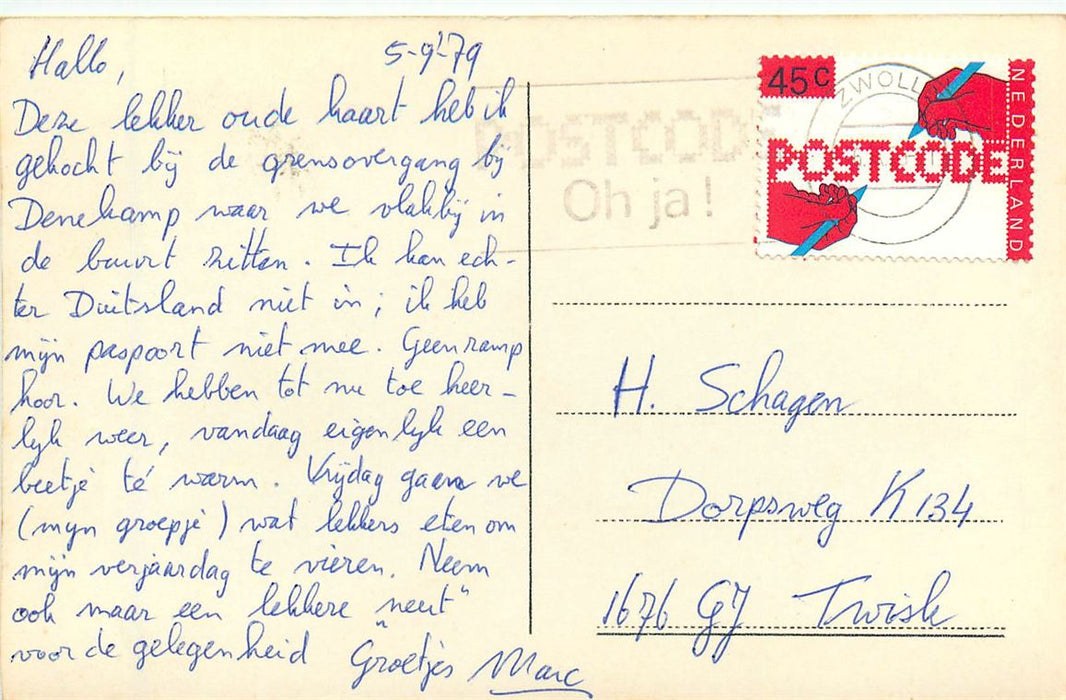 Hallo,
5-9-'79
Deze lekker oude kaart heb ik
gekocht bij de grensovergang bij
Denekamp waar we vlakbij in
de buurt zitten. Ik kan ech-
ter Duitsland niet in; ik heb
mijn paspoort niet mee. Geen ramp
hoor. We hebben tot nu toe heer-
lijk weer, vandaag eigenlijk een
beetje té warm. Vrijdag gaan we
(mijn groepje) wat lekkers eten om
mijn verjaardag te vieren. Neem
ook maar een lekkere „neut"
voor de gelegenheid Groetjes Marc
POSTCODE
Oh ja!
ZWOLL
45c
POSTCODE
NEDERLAND
H. Schagen
Dorpsweg K 134
1676 GJ Twisk